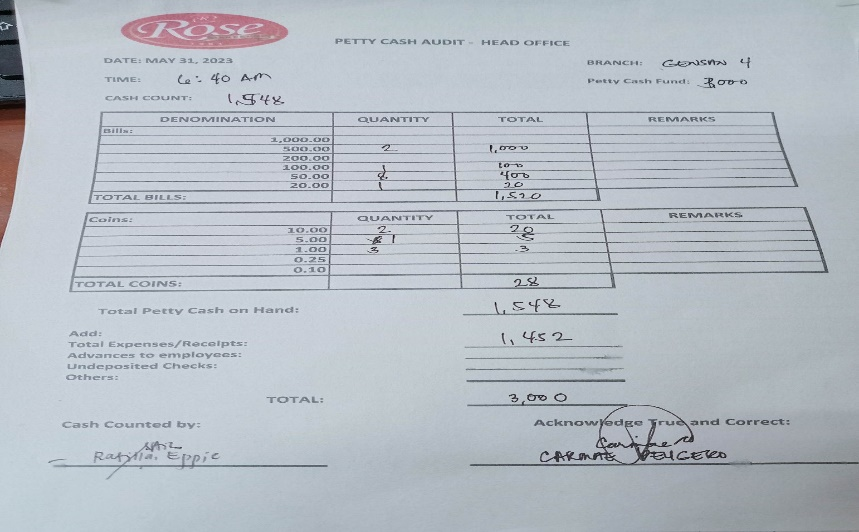 Rose
PETTY CASH AUDIT - HEAD OFFICE
DATE: MAY 31, 2023
BRANCH: GENSAN 4
TIME: 6:40 AM
Petty Cash Fund: 3,000
CASH COUNT: 1,548
DENOMINATION QUANTITY TOTAL REMARKS
Bills:
1,000.00
500.00 2 1,000
200.00
100.00 1 100
50.00 8 400
20.00 1 20
TOTAL BILLS: 1,520
Coins: QUANTITY TOTAL REMARKS
10.00 2 20
5.00 1 5
1.00 3 3
0.25
0.10
TOTAL COINS: 28
Total Petty Cash on Hand: 1,548
Add:
Total Expenses/Receipts: 1,452
Advances to employees:
Undeposited Checks:
Others:
TOTAL: 3,000
Cash Counted by: Acknowledge True and Correct:
Eppie
CARMAE